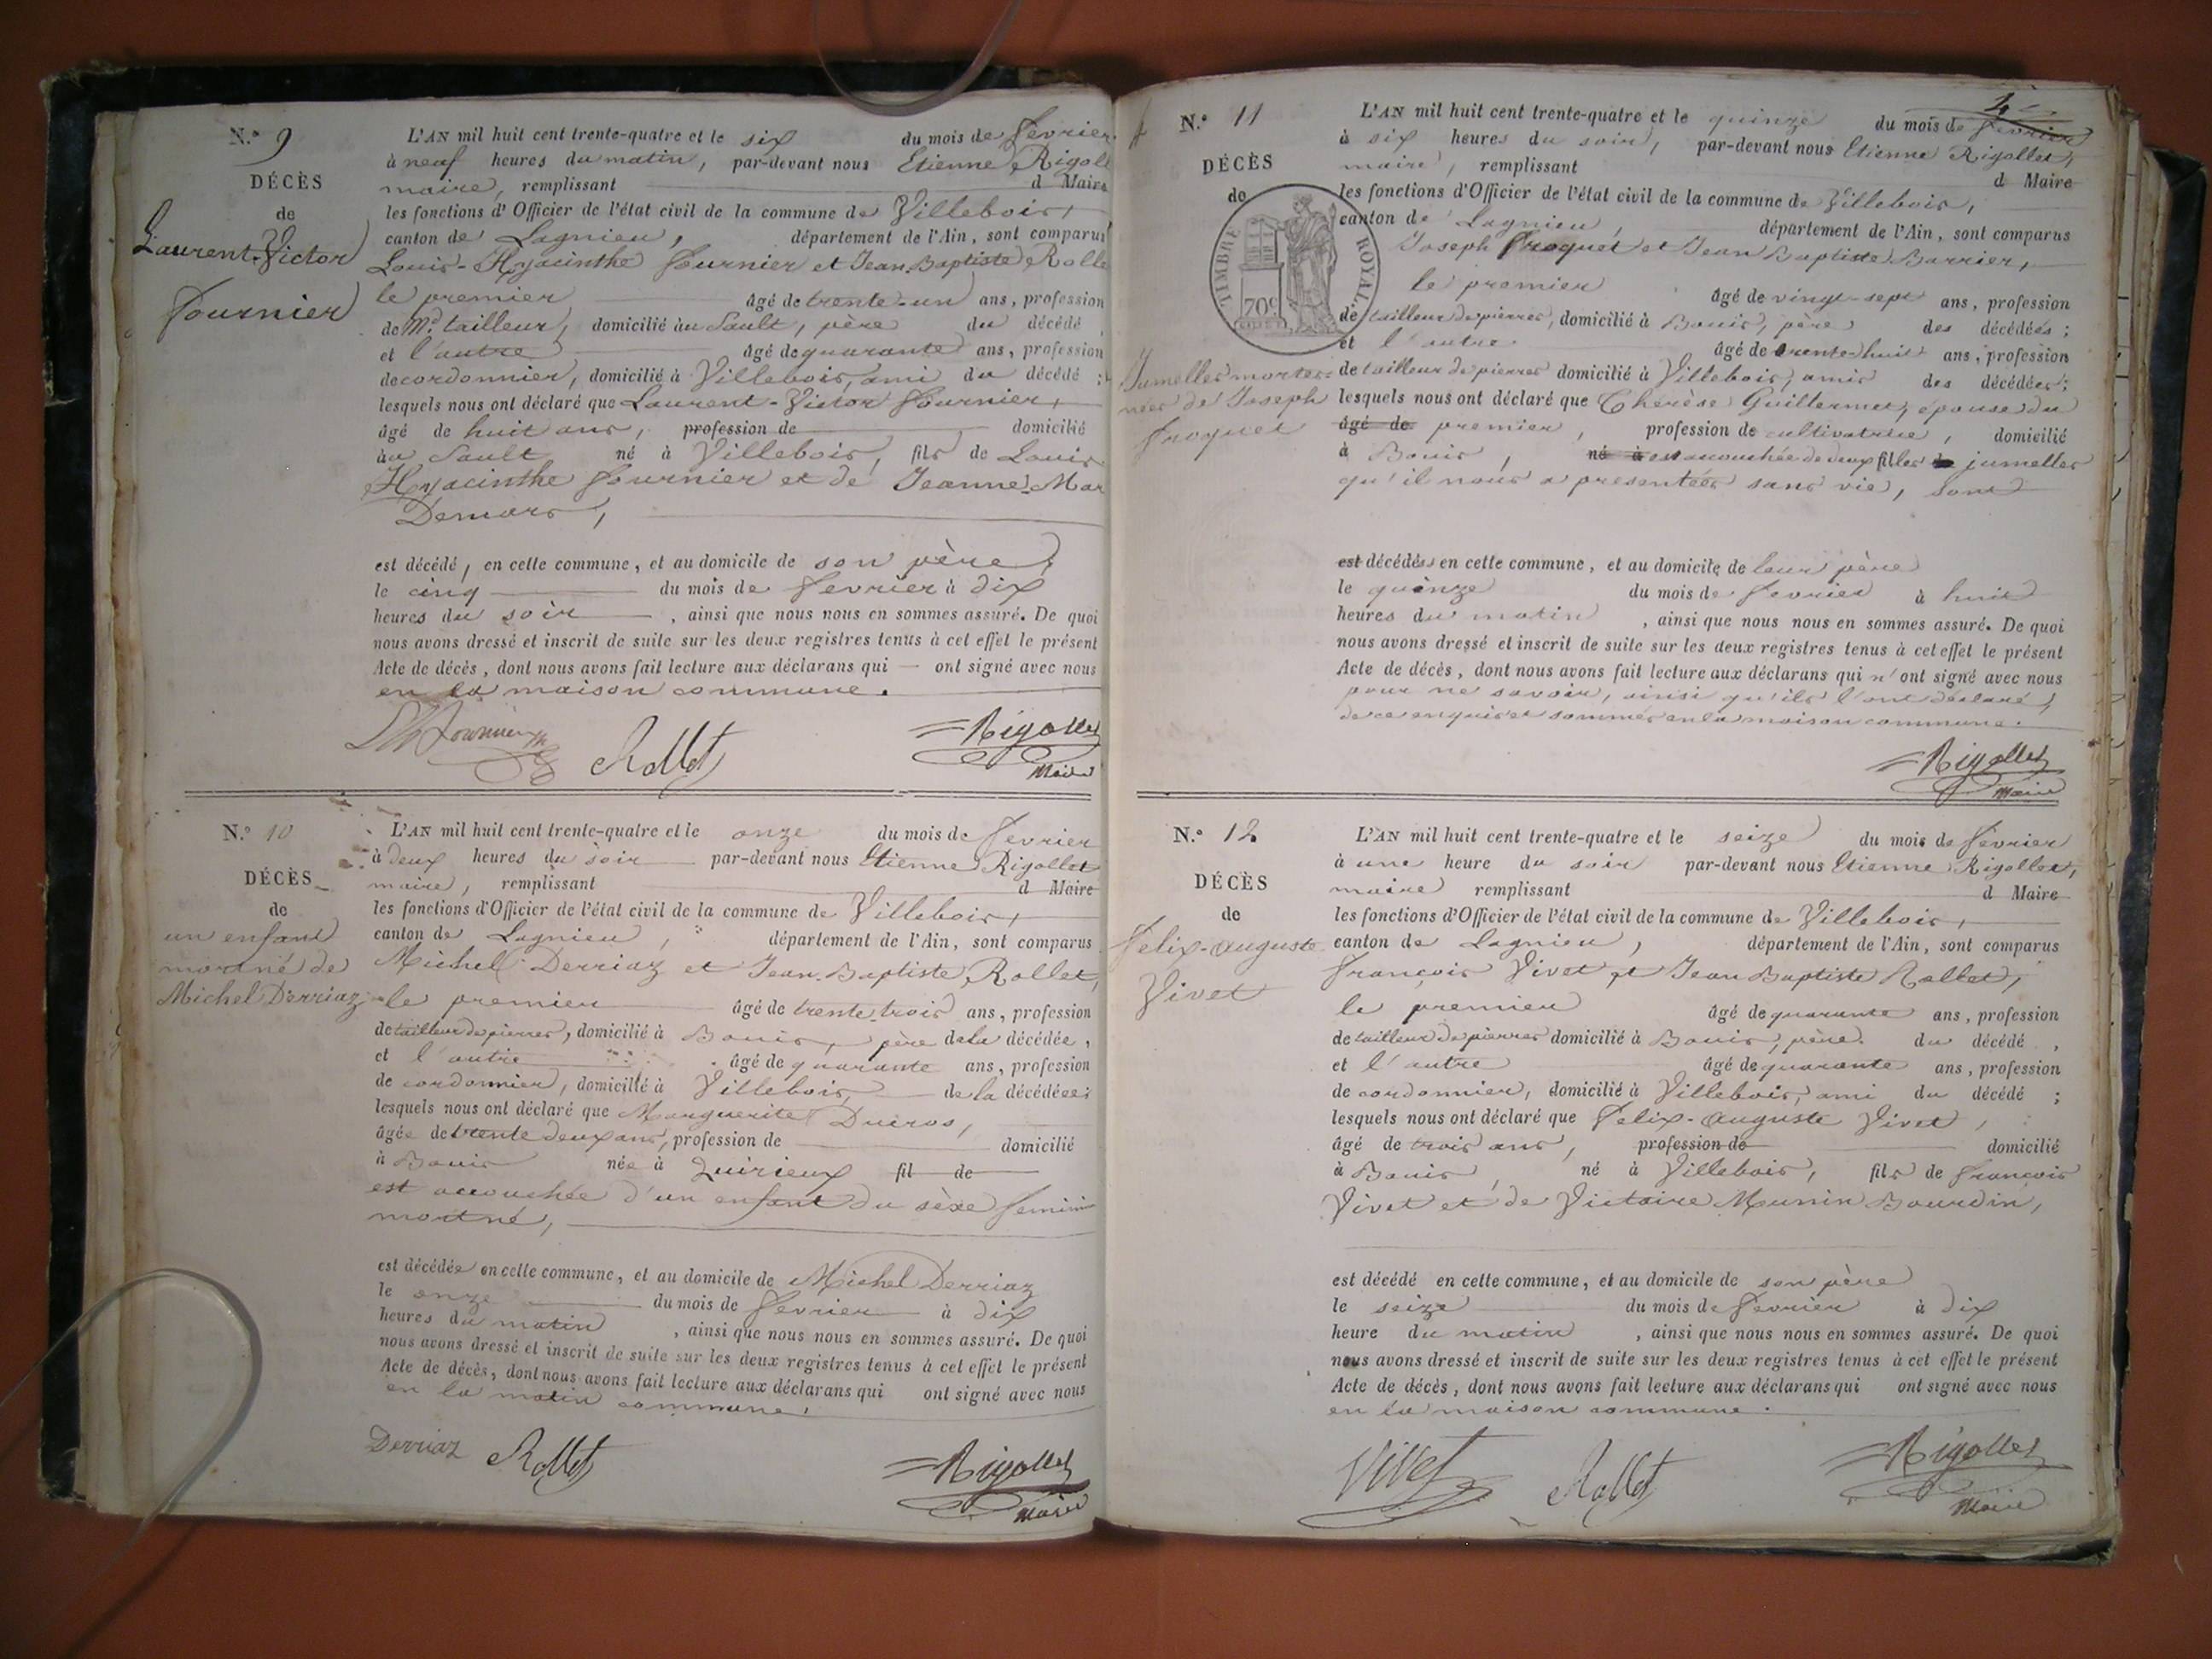 N.° 9
DÉCÈS
de
Laurent-Victor
Fournier
L'AN mil huit cent trente-quatre et le six du mois de février
à neuf heures du matin, par-devant nous Etienne Rigoll
maire, remplissant d Maire
les fonctions d'Officier de l'état civil de la commune de Villebois,
canton de Lagnieu, département de l'Ain, sont comparus
Louis-Hyacinthe Fournier et Jean-Baptiste Rolle
le premier âgé de trente-un ans, profession
de Md tailleur, domicilié au Sault, père du décédé
et l'autre âgé de quarante ans, profession
de cordonnier, domicilié à Villebois, ami du décédé ;
lesquels nous ont déclaré que Laurent-Victor Fournier,
âgé de huit ans, profession de domicilié
au Sault né à Villebois, fils de Louis
Hyacinthe Fournier et de Jeanne-Mar
Demars,
est décédé, en cette commune, et au domicile de son père,
le cinq du mois de février à dix
heures du soir, ainsi que nous nous en sommes assuré. De quoi
nous avons dressé et inscrit de suite sur les deux registres tenus à cet effet le présent
Acte de décès, dont nous avons fait lecture aux déclarans qui — ont signé avec nous
en la maison commune.
Fournier Rollet Rigollet
Maire
N.° 10
DÉCÈS
de
un enfant
mortné de
Michel Derriaz
L'AN mil huit cent trente-quatre et le onze du mois de février
à deux heures du soir par-devant nous Etienne Rigollet
maire, remplissant d Maire
les fonctions d'Officier de l'état civil de la commune de Villebois,
canton de Lagnieu, département de l'Ain, sont comparus
Michel Derriaz et Jean-Baptiste Rollet,
le premier âgé de trente-trois ans, profession
de tailleur de pierres, domicilié à Bouis, père de la décédée,
et l'autre âgé de quarante ans, profession
de cordonnier, domicilié à Villebois, de la décédée;
lesquels nous ont déclaré que Marguerite Ducros,
âgée de trente deux ans, profession de domicilié
à Bouis née à Quirieux fil de
est accouchée d'un enfant du sèxe féminin
mortné,
est décédée en cette commune, et au domicile de Michel Derriaz
le onze du mois de février à dix
heures du matin, ainsi que nous nous en sommes assuré. De quoi
nous avons dressé et inscrit de suite sur les deux registres tenus à cet effet le présent
Acte de décès, dont nous avons fait lecture aux déclarans qui ont signé avec nous
en la matin commune.
Derriaz Rollet Rigollet
Maire
N.° 11
DÉCÈS
de
TIMBRE ROYAL
70 c
Jumelles mortes
nées de Joseph
Froquet
L'AN mil huit cent trente-quatre et le quinze du mois de février
à six heures du soir, par-devant nous Etienne Rigollet,
maire, remplissant d Maire
les fonctions d'Officier de l'état civil de la commune de Villebois,
canton de Lagnieu, département de l'Ain, sont comparus
Joseph Froquet et Jean Baptiste Barrier,
le premier âgé de vingt-sept ans, profession
de tailleur de pierres, domicilié à Bouis, père des décédées ;
et l'autre âgé de trente-huit ans, profession
de tailleur de pierres domicilié à Villebois, amis des décédées;
lesquels nous ont déclaré que Thérèse Guillermet, épouse du
âgé de premier, profession de cultivatrice, domicilié
à Bouis, né à est accouchée de deux filles jumelles
qu'il nous a presentées sans vie, sont
est décédés en cette commune, et au domicile de leur père
le quinze du mois de février à huit
heures du matin, ainsi que nous nous en sommes assuré. De quoi
nous avons dressé et inscrit de suite sur les deux registres tenus à cet effet le présent
Acte de décès, dont nous avons fait lecture aux déclarans qui n'ont signé avec nous
pour ne savoir, ainsi qu'ils l'ont déclaré,
de ce enquis et sommés en la maison commune.
Rigollet
Maire
N.° 12
DÉCÈS
de
Felix-Auguste
Vivet
L'AN mil huit cent trente-quatre et le seize du mois de février
à une heure du soir par-devant nous Etienne Rigollet,
maire remplissant d Maire
les fonctions d'Officier de l'état civil de la commune de Villebois,
canton de Lagnieu, département de l'Ain, sont comparus
François Vivet et Jean Baptiste Rollet,
le premier âgé de quarante ans, profession
de tailleur de pierres domicilié à Bouis, père du décédé,
et l'autre âgé de quarante ans, profession
de cordonnier, domicilié à Villebois, ami du décédé ;
lesquels nous ont déclaré que Felix-Auguste Vivet,
âgé de trois ans, profession de domicilié
à Bouis, né à Villebois, fils de François
Vivet et de Victoire Munin Bourdin,
est décédé en cette commune, et au domicile de son père
le seize du mois de février à dix
heure du matin, ainsi que nous nous en sommes assuré. De quoi
nous avons dressé et inscrit de suite sur les deux registres tenus à cet effet le présent
Acte de décès, dont nous avons fait lecture aux déclarans qui ont signé avec nous
en la maison commune.
Vivet Rollet Rigollet
Maire